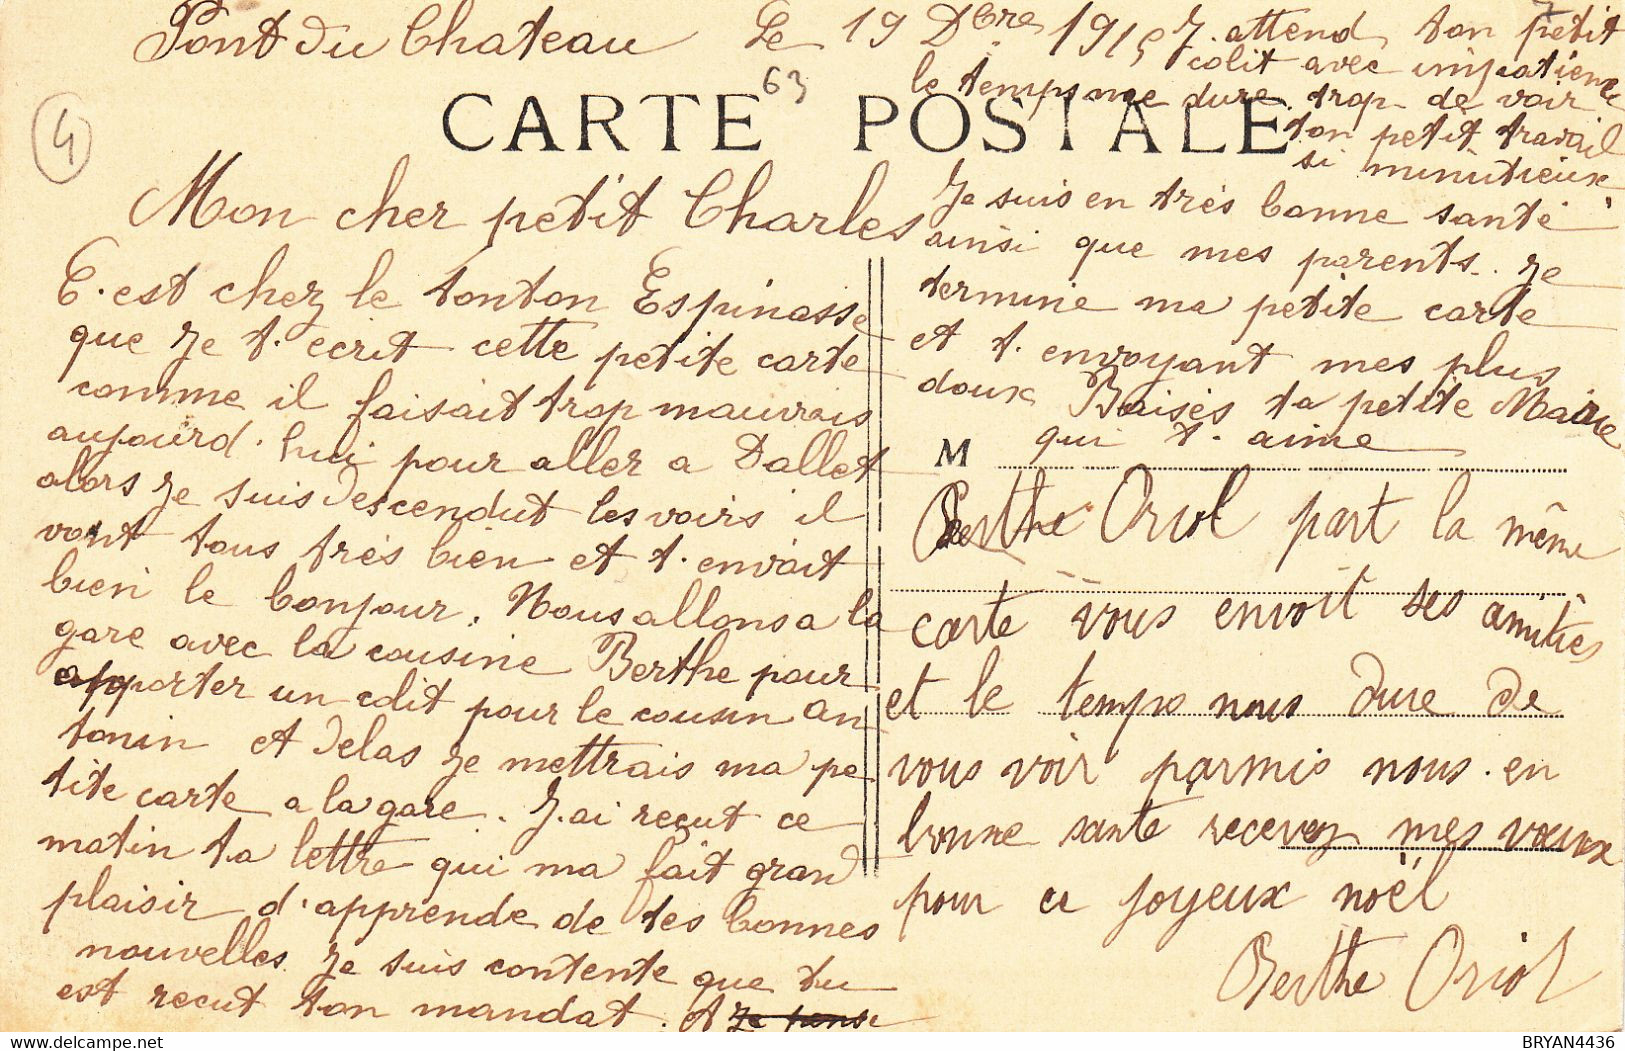 Pont du Chateau Le 19 Dbre 1915
63
4
CARTE POSTALE
Mon cher petit Charles
C. est chez le tonton Espinasse
que Je t. ecrit cette petite carte
comme il faisait trop mauvais
aujourd. hui pour aller a Dallet
alors Je suis descendut les voirs il
vont tous très bien et t. envoit
bien le bonjour. Nous allons a la
gare avec la cousine Berthe pour
apporter un colit pour le cousin An
tonin et delas Je mettrais ma pe
tite carte a la gare. J. ai reçut ce
matin ta lettre qui ma fait grand
plaisir d'apprende de tes bonnes
nouvelles Je suis contente que tu
est recut ton mandat. et Je pense
J. attend ton petit
colit avec impatience
le temps me dure trop de voir
ton petit travail
si minutieux
Je suis en très bonne santé
ainsi que mes parents. Je
termine ma petite carte
et t. envoyant mes plus
doux Baisés ta petite Marie
M qui t. aime
Berthe Oriol part la même
carte vous envoit ses amitiés
et le temps nous dure de
vous voir parmis nous. en
bonne santé recevez mes vœux
pour ce joyeux noël
Berthe Oriol
delcampe.net
BRYAN4436